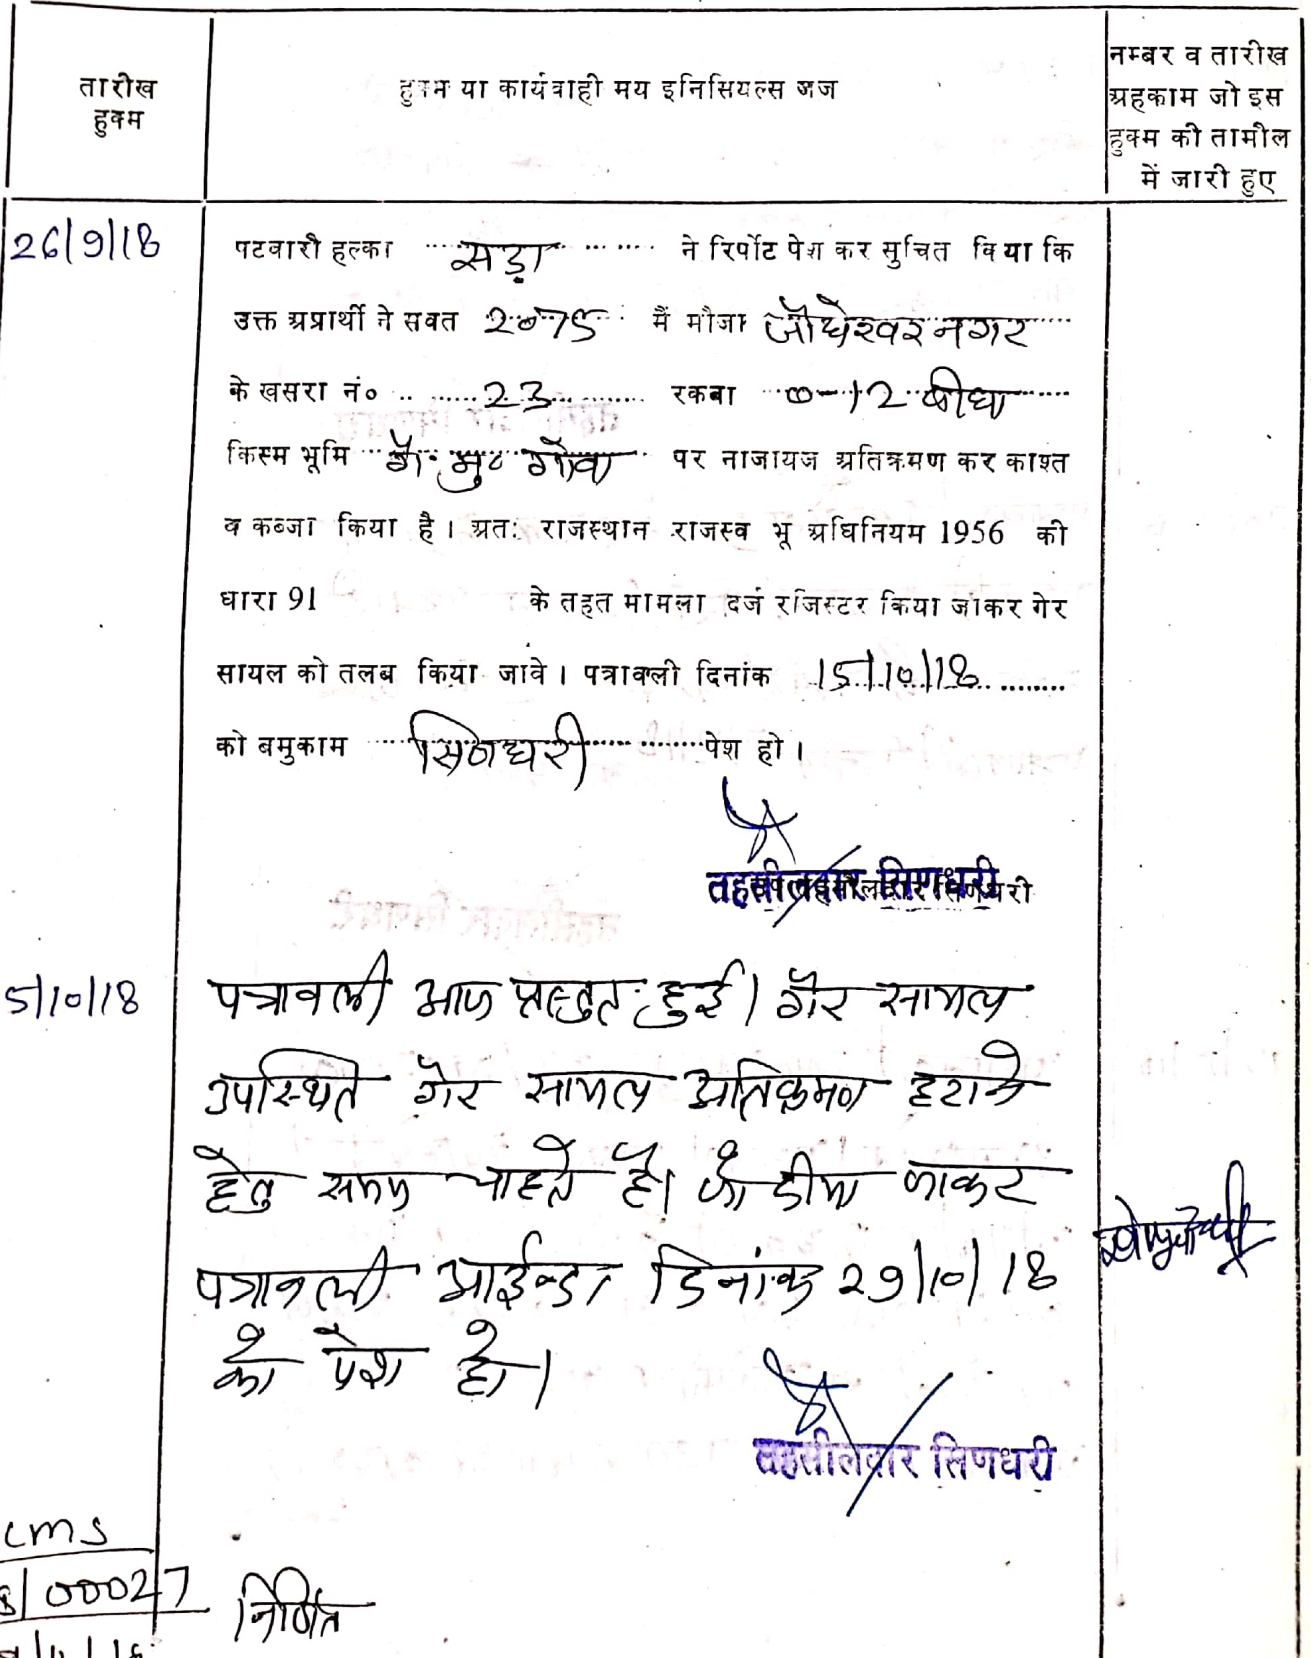 तारीख
हुक्म
हुक्म या कार्यवाही मय इनिसियल्स जज
नम्बर व तारीख
अहकाम जो इस
हुक्म की तामील
में जारी हुए
26/9/18
पटवारी हल्का सड़ा ने रिर्पोट पेश कर सुचित किया कि
उक्त अप्रार्थी ने सवत 2075 में मौजा जौधेश्वर नगर
के खसरा नं० 23 रकबा 0-12 बीघा
किस्म भूमि गै. मु. पर नाजायज अतिक्रमण कर काश्त
व कब्जा किया है। अतः राजस्थान राजस्व भू अधिनियम 1956 की
धारा 91 के तहत मामला दर्ज रजिस्टर किया जाकर गेर
सायल को तलब किया जावे। पत्रावली दिनांक 15/10/18
को बमुकाम सिणधरी पेश हो।
तहसीलदार सिणधरी
5/10/18
पत्रावली आज प्रस्तुत हुई। गैर सायल
उपस्थित गैर सायल अतिक्रमण हटाने
हेतु समय चाहते है।
पत्रावली आईन्दा दिनांक 29/10/18
को पेश हो।
तहसीलदार सिणधरी
cms
/00027
निर्णित